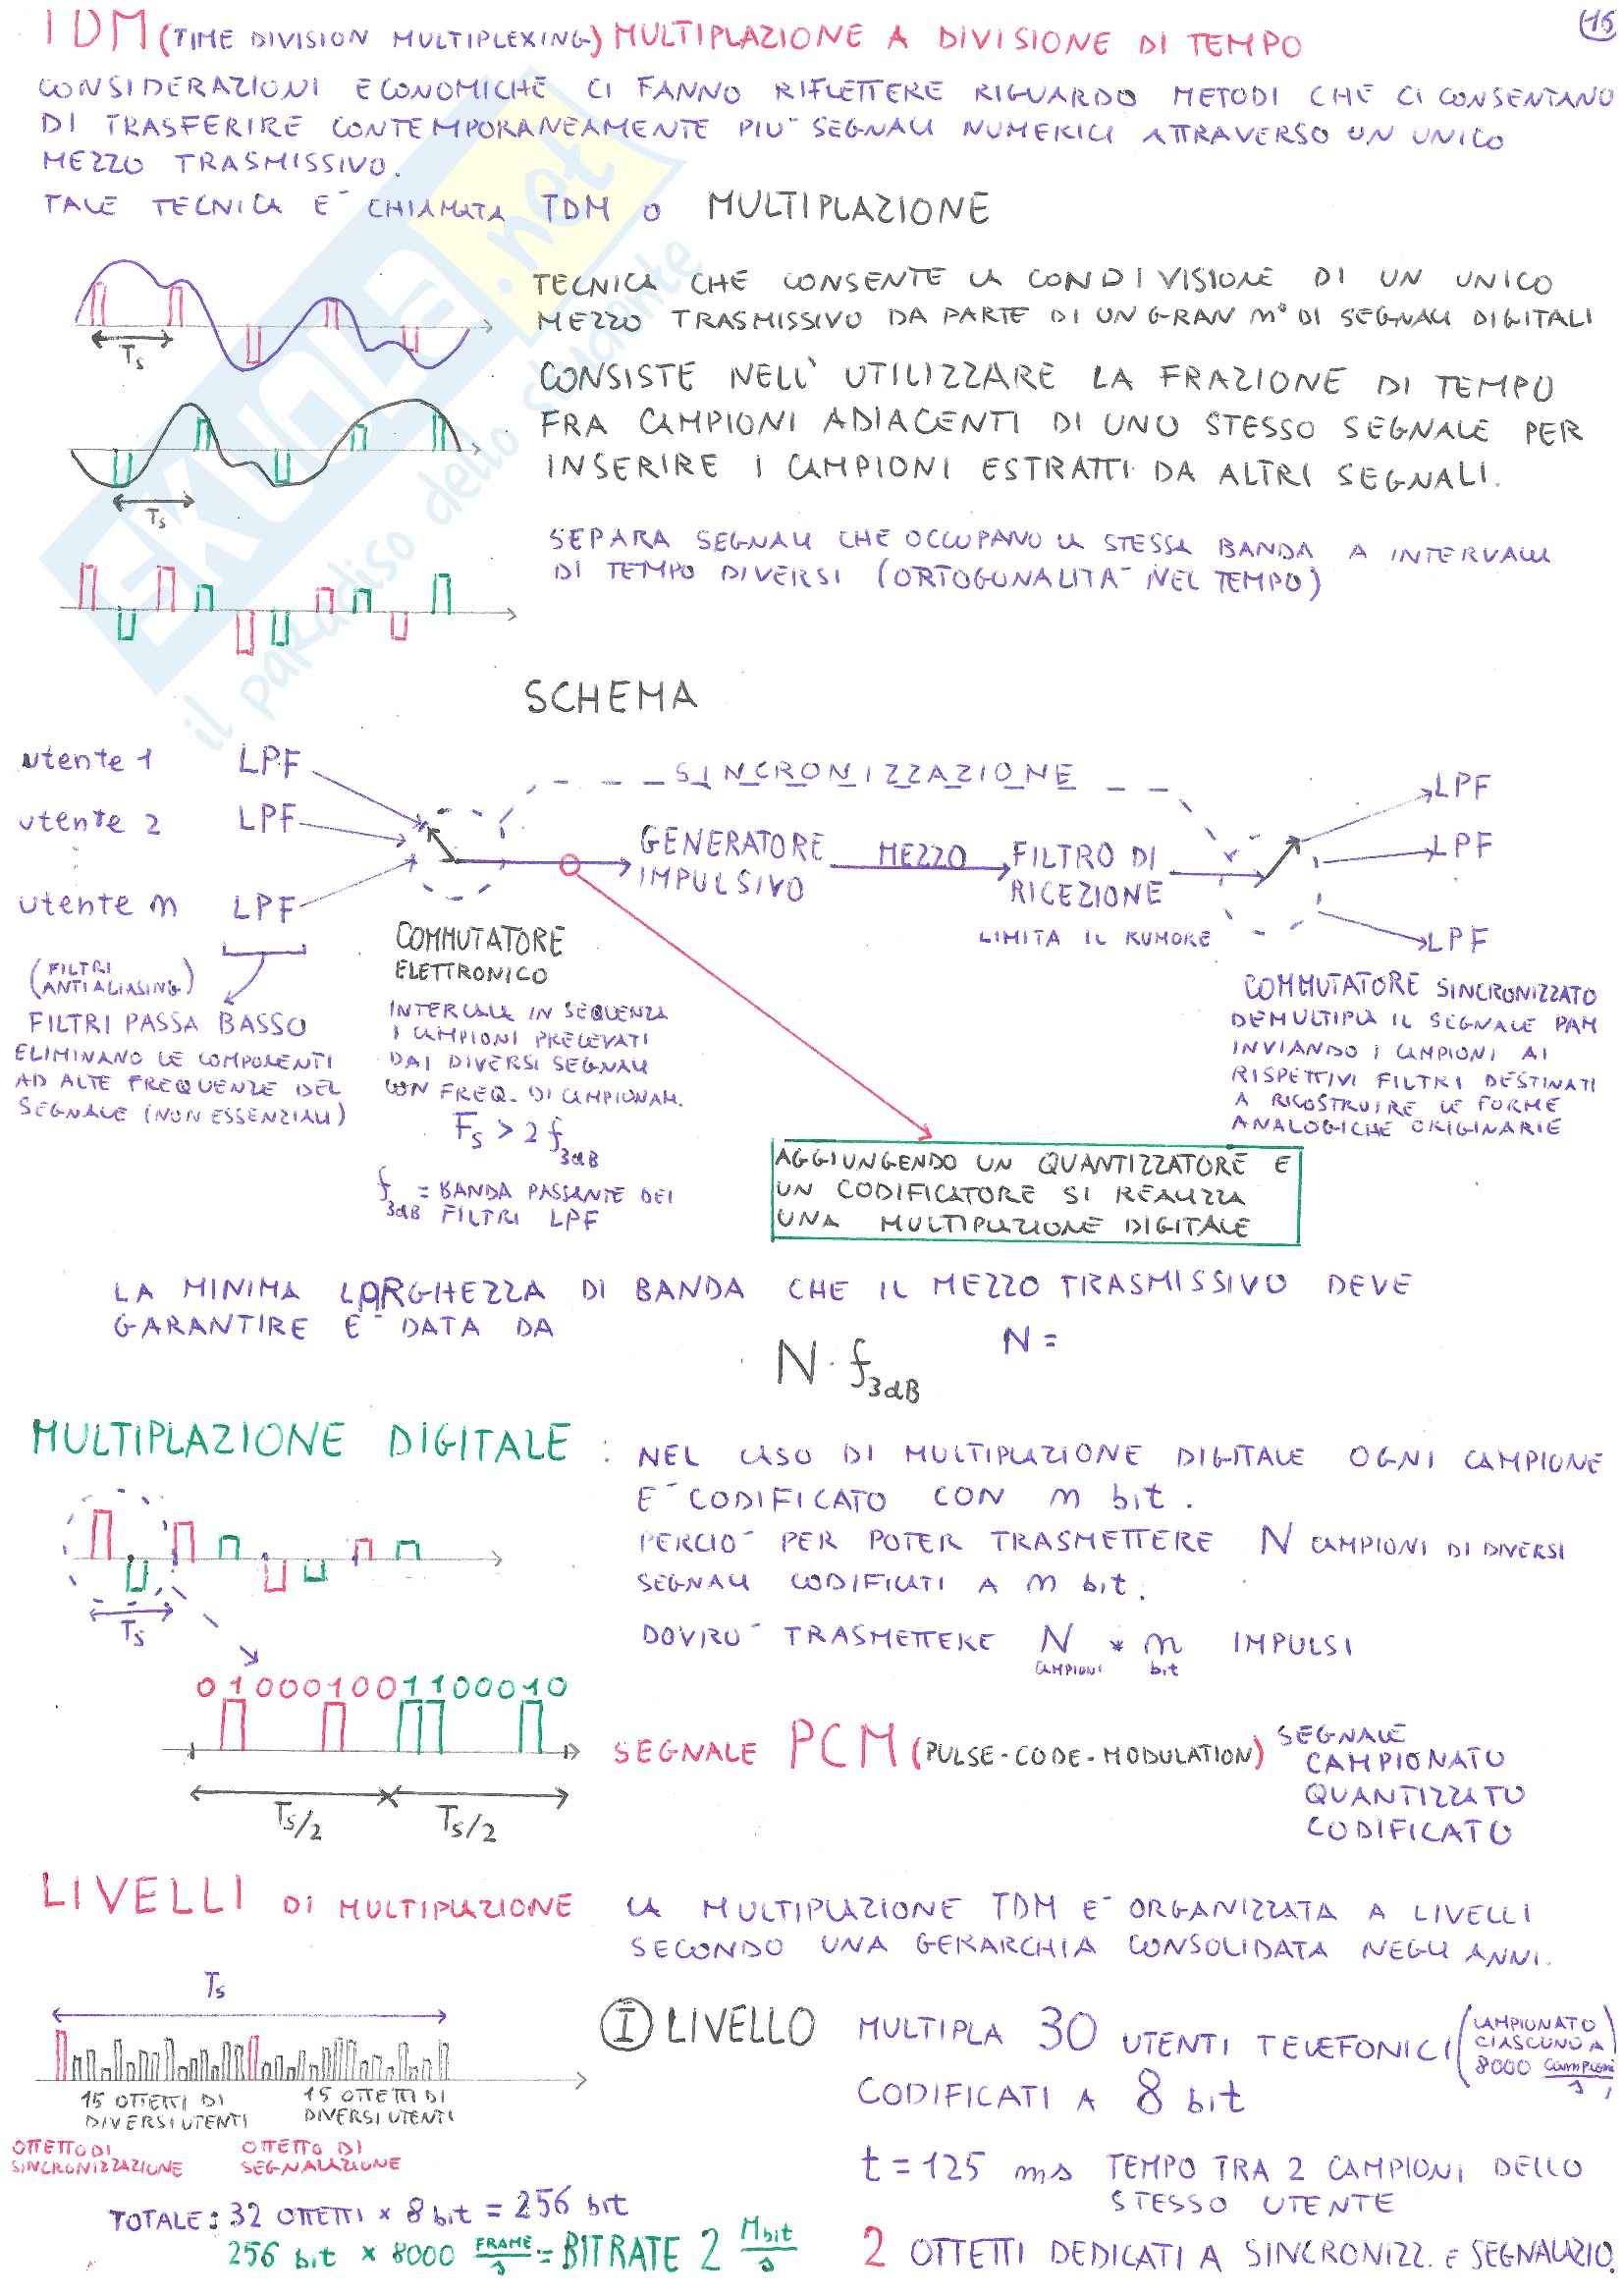 15
TDM (TIME DIVISION MULTIPLEXING) MULTIPLAZIONE A DIVISIONE DI TEMPO
CONSIDERAZIONI ECONOMICHE CI FANNO RIFLETTERE RIGUARDO METODI CHE CI CONSENTANO
DI TRASFERIRE CONTEMPORANEAMENTE PIU' SEGNALI NUMERICI ATTRAVERSO UN UNICO
MEZZO TRASMISSIVO.
TALE TECNICA E' CHIAMATA TDM O MULTIPLAZIONE
TECNICA CHE CONSENTE LA CONDIVISIONE DI UN UNICO
MEZZO TRASMISSIVO DA PARTE DI UN GRAN n° DI SEGNALI DIGITALI
Ts
CONSISTE NELL' UTILIZZARE LA FRAZIONE DI TEMPO
FRA CAMPIONI ADIACENTI DI UNO STESSO SEGNALE PER
INSERIRE I CAMPIONI ESTRATTI DA ALTRI SEGNALI.
Ts
SEPARA SEGNALI CHE OCCUPANO LA STESSA BANDA A INTERVALLI
DI TEMPO DIVERSI (ORTOGONALITA' NEL TEMPO)
SKUOLA.net
il paradiso dello studente
SCHEMA
utente 1 LPF
utente 2 LPF
utente n LPF
SINCRONIZZAZIONE
GENERATORE
IMPULSIVO
MEZZO
FILTRO DI
RICEZIONE
LIMITA IL RUMORE
LPF
LPF
LPF
(FILTRI
ANTIALIASING)
FILTRI PASSA BASSO
ELIMINANO LE COMPONENTI
AD ALTE FREQUENZE DEL
SEGNALE (NON ESSENZIALI)
COMMUTATORE
ELETTRONICO
INTERCALA IN SEQUENZA
I CAMPIONI PRELEVATI
DAI DIVERSI SEGNALI
CON FREQ. DI CAMPIONAM.
Fs > 2 f3dB
f3dB = BANDA PASSANTE DEI
FILTRI LPF
COMMUTATORE SINCRONIZZATO
DEMULTIPLA IL SEGNALE PAM
INVIANDO I CAMPIONI AI
RISPETTIVI FILTRI DESTINATI
A RICOSTRUIRE LE FORME
ANALOGICHE ORIGINARIE
AGGIUNGENDO UN QUANTIZZATORE E
UN CODIFICATORE SI REALIZZA
UNA MULTIPLAZIONE DIGITALE
LA MINIMA LARGHEZZA DI BANDA CHE IL MEZZO TRASMISSIVO DEVE
GARANTIRE E' DATA DA
N · f3dB N =
MULTIPLAZIONE DIGITALE : NEL CASO DI MULTIPLAZIONE DIGITALE OGNI CAMPIONE
E' CODIFICATO CON n bit.
PERCIO' PER POTER TRASMETTERE N CAMPIONI DI DIVERSI
SEGNALI CODIFICATI A n bit.
Ts
DOVRO' TRASMETTERE N * n IMPULSI
CAMPIONI bit
010001001100010
SEGNALE PCM (PULSE-CODE-MODULATION) SEGNALE
CAMPIONATO
QUANTIZZATO
CODIFICATO
Ts/2 Ts/2
LIVELLI DI MULTIPLAZIONE LA MULTIPLAZIONE TDM E' ORGANIZZATA A LIVELLI
SECONDO UNA GERARCHIA CONSOLIDATA NEGLI ANNI.
Ts
I LIVELLO MULTIPLA 30 UTENTI TELEFONICI (CAMPIONATO
CIASCUNO A
8000 campioni/s)
CODIFICATI A 8 bit
15 OTTETTI DI
DIVERSI UTENTI
15 OTTETTI DI
DIVERSI UTENTI
OTTETTO DI
SINCRONIZZAZIONE
OTTETTO DI
SEGNALAZIONE
t = 125 ms TEMPO TRA 2 CAMPIONI DELLO
STESSO UTENTE
TOTALE: 32 OTTETTI × 8 bit = 256 bit
256 bit × 8000 FRAME/s = BITRATE 2 Mbit/s
2 OTTETTI DEDICATI A SINCRONIZZ. E SEGNALAZIO.